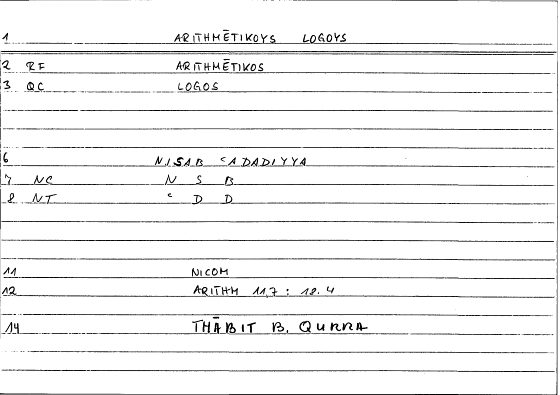 1 ARITHMĒTIKOYS LOGOYS
2 RF ARITHMĒTIKOS
3 QC LOGOS
6 NISAB ʿADADIYYA
7 NC N S B
8 NT ʿ D D
11 NICOM
12 ARITHM 11,7 : 18.4
14 THĀBIT B. QURRA